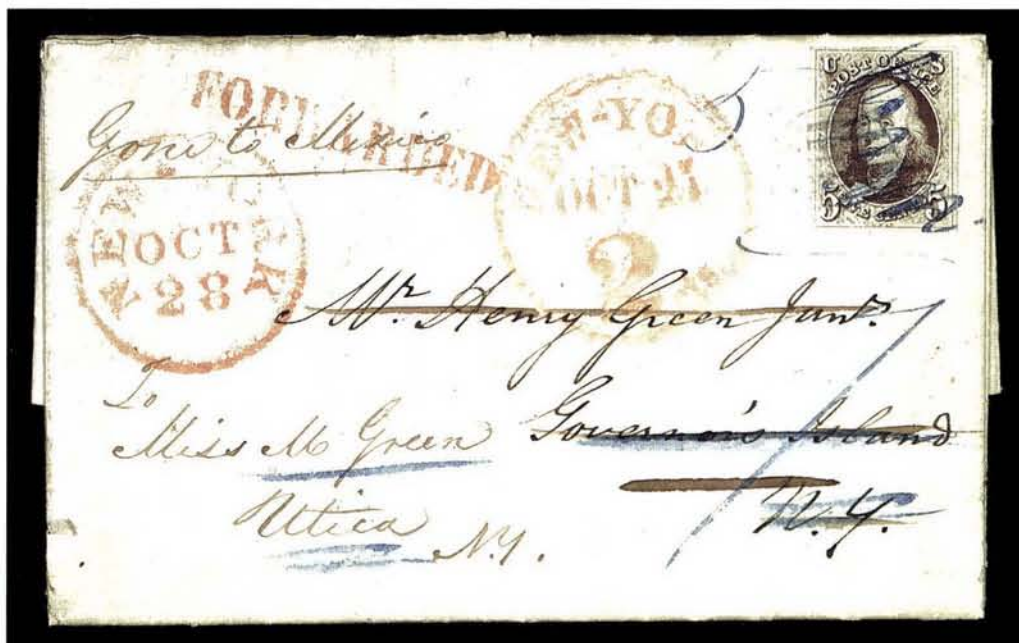 FORWARDED
Gone to Mexico
NEW-YORK
OCT 27
2
U S
POST OFFICE
5 FIVE CENTS 5
OCT
28
Mr. Henry Green Junr.
Governor's Island
N.Y.
To
Miss M Green
Utica
N.Y.